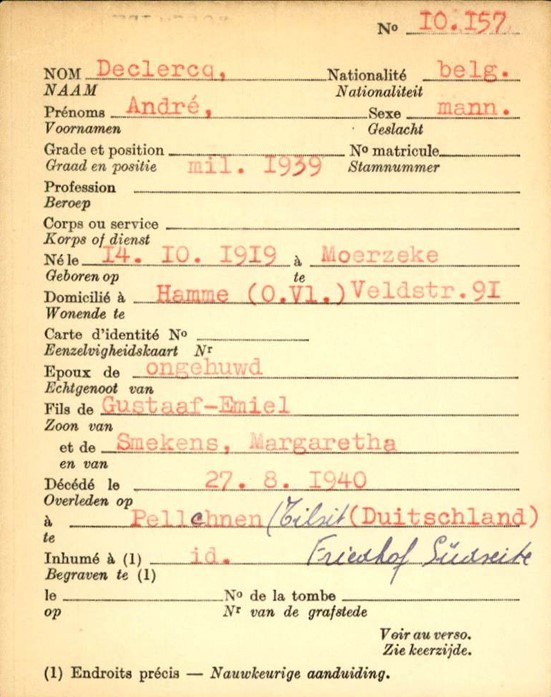 No 10.157.
NOM Declercq, Nationalité belg.
NAAM Nationaliteit
Prénoms André, Sexe mann.
Voornamen Geslacht
Grade et position No matricule
Graad en positie mil. 1939 Stamnummer
Profession
Beroep
Corps ou service
Korps of dienst
Né le 14. 10. 1919 à Moerzeke
Geboren op te
Domicilié à Hamme (O.Vl.) Veldstr.91
Wonende te
Carte d'identité No
Eenzelvigheidskaart Nr
Epoux de ongehuwd
Echtgenoot van
Fils de Gustaaf-Emiel
Zoon van
et de Smekens, Margaretha
en van
Décédé le 27. 8. 1940
Overleden op
à Pellehnen /Tilsit (Duitschland)
te
Inhumé à (1) id. Friedhof Südseite
Begraven te (1)
le No de la tombe
op Nr van de grafstede
Voir au verso.
Zie keerzijde.
(1) Endroits précis — Nauwkeurige aanduiding.